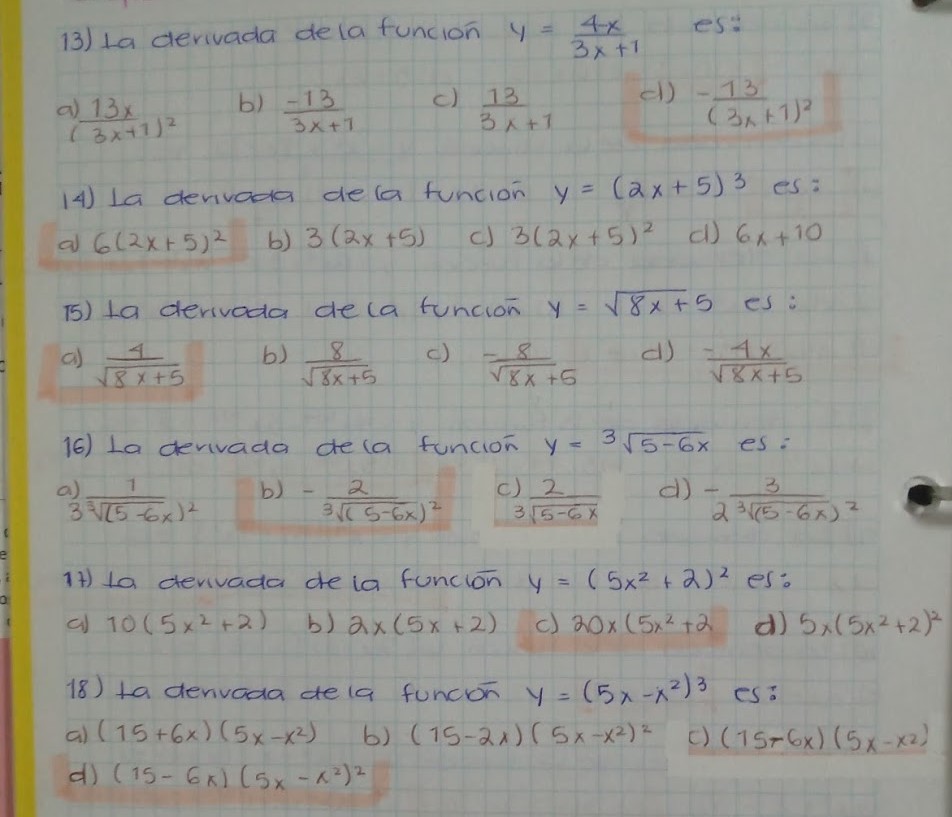 13) La derivada de la función y = 4-x / 3x+1 es:
a) 13x / (3x+1)² b) -13 / 3x+1 c) 13 / 3x+1 d) - 13 / (3x+1)²
14) La derivada de la función y = (2x+5)³ es:
a) 6(2x+5)² b) 3(2x+5) c) 3(2x+5)² d) 6x+10
15) La derivada de la función y = √8x+5 es:
a) 4 / √8x+5 b) 8 / √8x+5 c) - 8 / √8x+5 d) - 4x / √8x+5
16) La derivada de la función y = ³√5-6x es:
a) 1 / 3³√(5-6x)² b) - 2 / ³√(5-6x)² c) 2 / ³√5-6x d) - 3 / 2³√(5-6x)²
17) La derivada de la función y = (5x²+2)² es:
a) 10(5x²+2) b) 2x(5x+2) c) 20x(5x²+2 d) 5x(5x²+2)²
18) La derivada de la función y = (5x-x²)³ es:
a) (15+6x)(5x-x²) b) (15-2x)(5x-x²)² c) (15-6x)(5x-x²)
d) (15-6x)(5x-x²)²